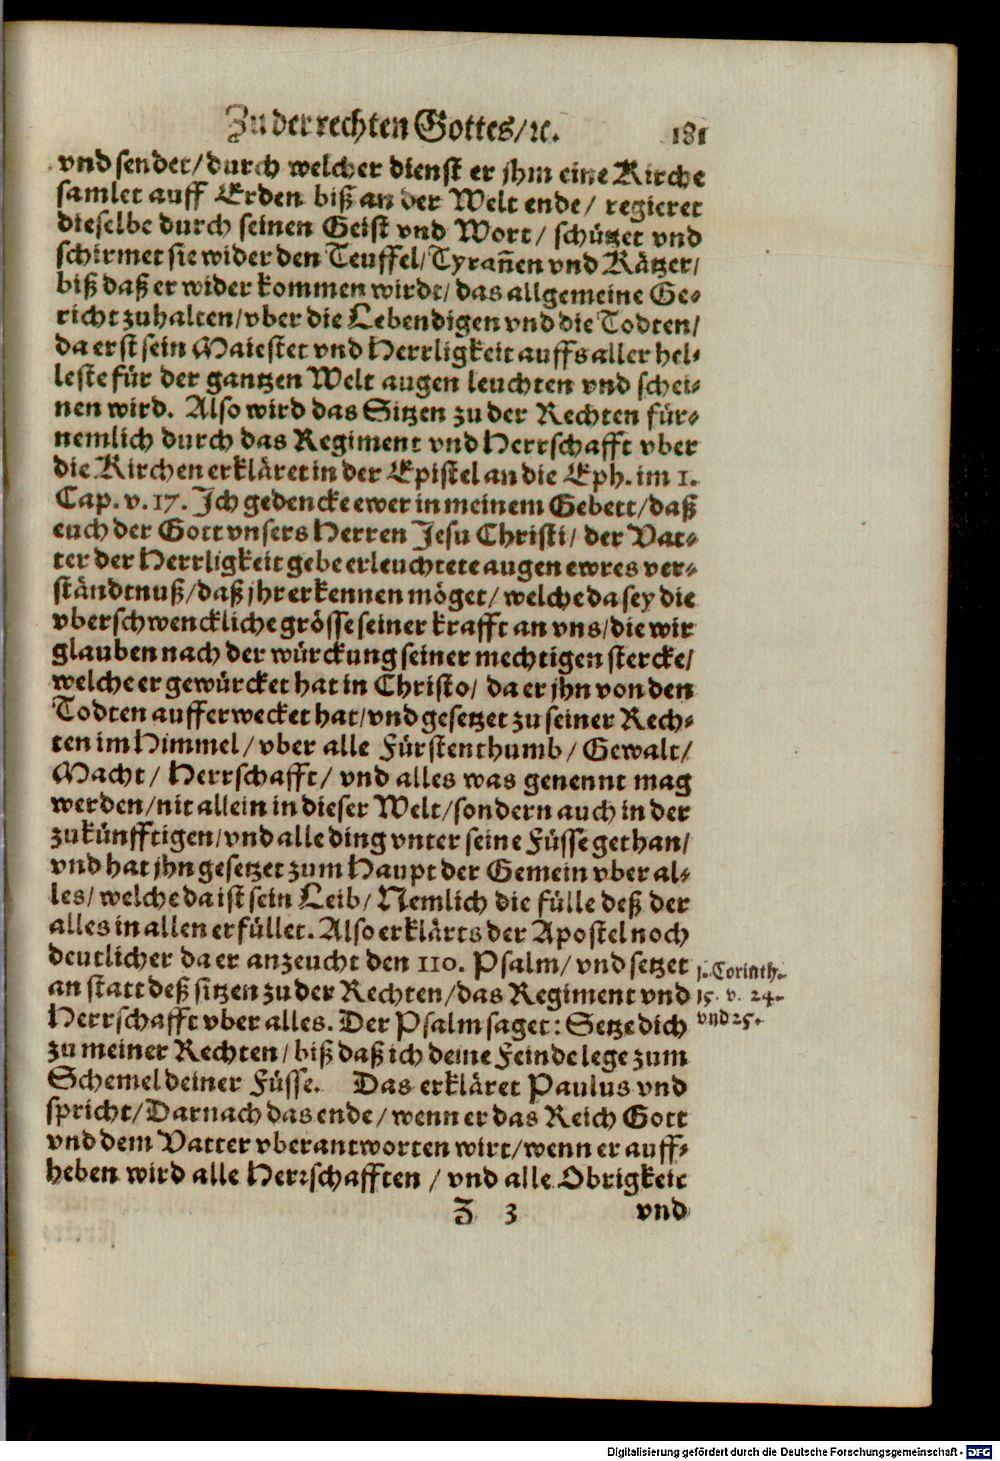 Zu der rechten Gottes/ꝛc. 181
vnd sendet/durch welcher dienst er jhm eine Kirche
samlet auff Erden biß an der Welt ende/ regieret
dieselbe durch seinen Geist vnd Wort/ schützet vnd
schirmet sie wider den Teuffel/Tyrañen vnd Kätzer/
biß daß er wider kommen wirdt/das allgemeine Ge-
richt zuhalten/vber die Lebendigen vnd die Todten/
da erst sein Maiestet vnd Herrligkeit auffs aller hel-
leste für der gantzen Welt augen leuchten vnd schei-
nen wird. Also wird das Sitzen zu der Rechten für-
nemlich durch das Regiment vnd Herrschafft vber
die Kirchen erkläret in der Epistel an die Eph. im 1.
Cap. v. 17. Ich gedencke ewer in meinem Gebett/daß
euch der Gott vnsers Herren Jesu Christi/ der Vat-
ter der Herrligkeit gebe erleuchtete augen ewres ver-
ständtnuß/daß jhr erkennen möget/welche da sey die
vberschwenckliche grösse seiner krafft an vns/die wir
glauben nach der würckung seiner mechtigen stercke/
welche er gewürcket hat in Christo/ da er jhn von den
Todten aufferwecket hat/vnd gesetzet zu seiner Rech-
ten im Himmel/vber alle Fürstenthumb/ Gewalt/
Macht/ Herrschafft/ vnd alles was genennt mag
werden/nit allein in dieser Welt/sondern auch in der
zukünfftigen/vnd alle ding vnter seine Füsse gethan/
vnd hat jhn gesetzet zum Haupt der Gemein vber al-
les/welche da ist sein Leib/ Nemlich die fülle deß der
alles in allen erfüllet. Also erklärts der Apostel noch
deutlicher da er anzeucht den 110. Psalm/ vnd setzet
an statt deß sitzen zu der Rechten/das Regiment vnd
Herrschafft vber alles. Der Psalm saget: Setze dich
zu meiner Rechten/biß daß ich deine Feinde lege zum
Schemel deiner Füsse. Das erkläret Paulus vnd
spricht/Darnach das ende/wenn er das Reich Gott
vnd dem Vatter vberantworten wirt/wenn er auff-
heben wird alle Herrschafften/vnd alle Obrigkeit
1. Corinth.
15. v. 24.
vnd 25.
Z 3 vnd
Digitalisierung gefördert durch die Deutsche Forschungsgemeinschaft - DFG